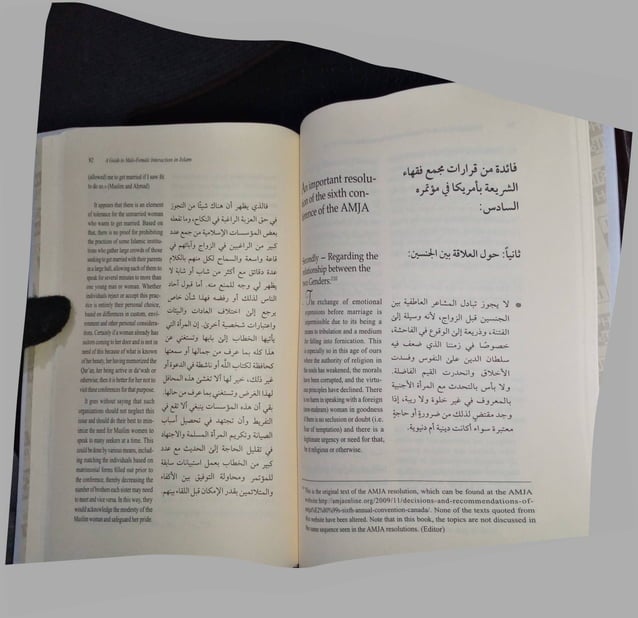 92 A Guide to Male-Female Interaction in Islam
(allowed) me to get married if I saw fit
to do so.» (Muslim and Ahmad)
It appears that there is an element
of tolerance for the unmarried woman
who wants to get married. Based on
that, there is no proof for prohibiting
the practices of some Islamic institu-
tions who gather large crowds of those
seeking to get married with their parents
in a large hall, allowing each of them to
speak for several minutes to more than
one young man or woman. Whether
individuals reject or accept this prac-
tice is entirely their personal choice,
based on differences in custom, envi-
ronment and other personal considera-
tions. Certainly if a woman already has
suitors coming to her door and is not in
need of this because of what is known
of her beauty, her having memorized the
Qur'an, her being active in da'wah or
otherwise, then it is better for her not to
visit these conferences for that purpose.
It goes without saying that such
organisations should not neglect this
issue and should do their best to min-
imize the need for Muslim women to
speak to many seekers at a time. This
could be done by various means, includ-
ing matching the individuals based on
matrimonial forms filled out prior to
the conference, thereby decreasing the
number of brothers each sister may need
to meet and vice versa. In this way, they
would acknowledge the modesty of the
Muslim woman and safeguard her pride.
فالذي يظهر أن هناك شيئًا من التجوز
في حق العزبة الراغبة في النكاح، وما تفعله
بعض المؤسسات الإسلامية من جمع عدد
كبير من الراغبين في الزواج وآبائهم في
قاعة واسعة والسماح لكل منهم بالكلام
عدة دقائق مع أكثر من شاب أو شابة لا
يظهر لي وجه للمنع منه. أما قبول آحاد
الناس لذلك أو رفضه فهذا شأن خاص
يرجع إلى اختلاف العادات والبيئات
واعتبارات شخصية أخرى. إن المرأة التي
يأتيها الخطاب إلى بابها وتستغني عن
هذا كله بما عرف من جمالها أو سمعتها
كحافظة لكتاب الله أو ناشطة في الدعوة أو
غير ذلك، خير لها ألا تغشى هذه المحافل
لهذا الغرض وتستغني بما عرف من حالها.
بقي أن هذه المؤسسات ينبغي ألا تقع في
التفريط وأن تجتهد في تحصيل أسباب
الصيانة وتكريم المرأة المسلمة والاجتهاد
في تقليل الحاجة إلى الحديث مع عدد
كبير من الخطاب بعمل استبيانات سابقة
للمؤتمر ومحاولة التوفيق بين الأكفاء
والمتلائمين بقدر الإمكان قبل اللقاء بينهم.
An important resolu-
tion of the sixth con-
ference of the AMJA
Secondly – Regarding the
relationship between the
two Genders:
The exchange of emotional
expressions before marriage is
impermissible due to its being a
means to tribulation and a medium
for falling into fornication. This
is especially so in this age of ours
where the authority of religion in
the souls has weakened, the morals
have been corrupted, and the virtu-
ous principles have declined. There
is no harm in speaking with a foreign
(non-mahram) woman in goodness
if there is no seclusion or doubt (i.e.
fear of temptation) and there is a
legitimate urgency or need for that,
be it religious or otherwise.
فائدة من قرارات مجمع فقهاء
الشريعة بأمريكا في مؤتمره
السادس:
ثانياً: حول العلاقة بين الجنسين:
* لا يجوز تبادل المشاعر العاطفية بين
الجنسين قبل الزواج، لأنه وسيلة إلى
الفتنة، وذريعة إلى الوقوع في الفاحشة،
خصوصًا في زمننا الذي ضعف فيه
سلطان الدين على النفوس وفسدت
الأخلاق وانحدرت القيم الفاضلة.
ولا بأس بالتحدث مع المرأة الأجنبية
بالمعروف في غير خلوة ولا ريبة، إذا
وجد مقتض لذلك من ضرورة أو حاجة
معتبرة سواء أكانت دينية أم دنيوية.
This is the original text of the AMJA resolution, which can be found at the AMJA
website:http://amjaonline.org/2009/11/decisions-and-recommendations-of-
amja%E2%80%99s-sixth-annual-convention-canada/. None of the texts quoted from
this website have been altered. Note that in this book, the topics are not discussed in
the same sequence seen in the AMJA resolutions. (Editor)